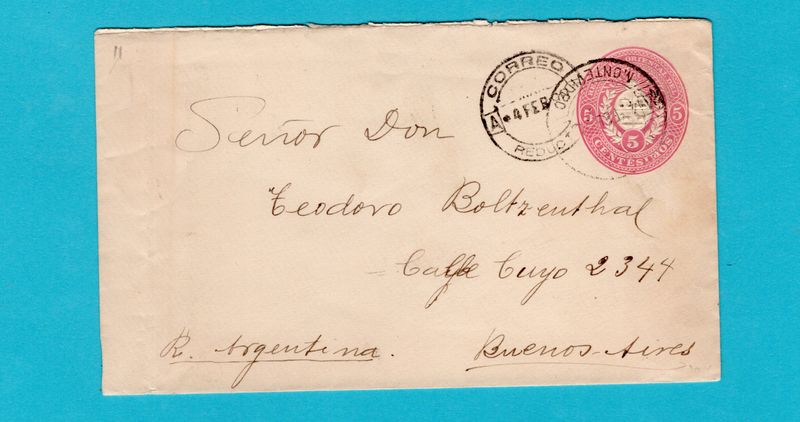 CORREO
A
REDUC
MONTEVIDEO
5 5
5
CENTESIMOS
Señor Don
Teodoro Boltzenthal
Calle Cuyo 2344
R. Argentina.
Buenos-Aires